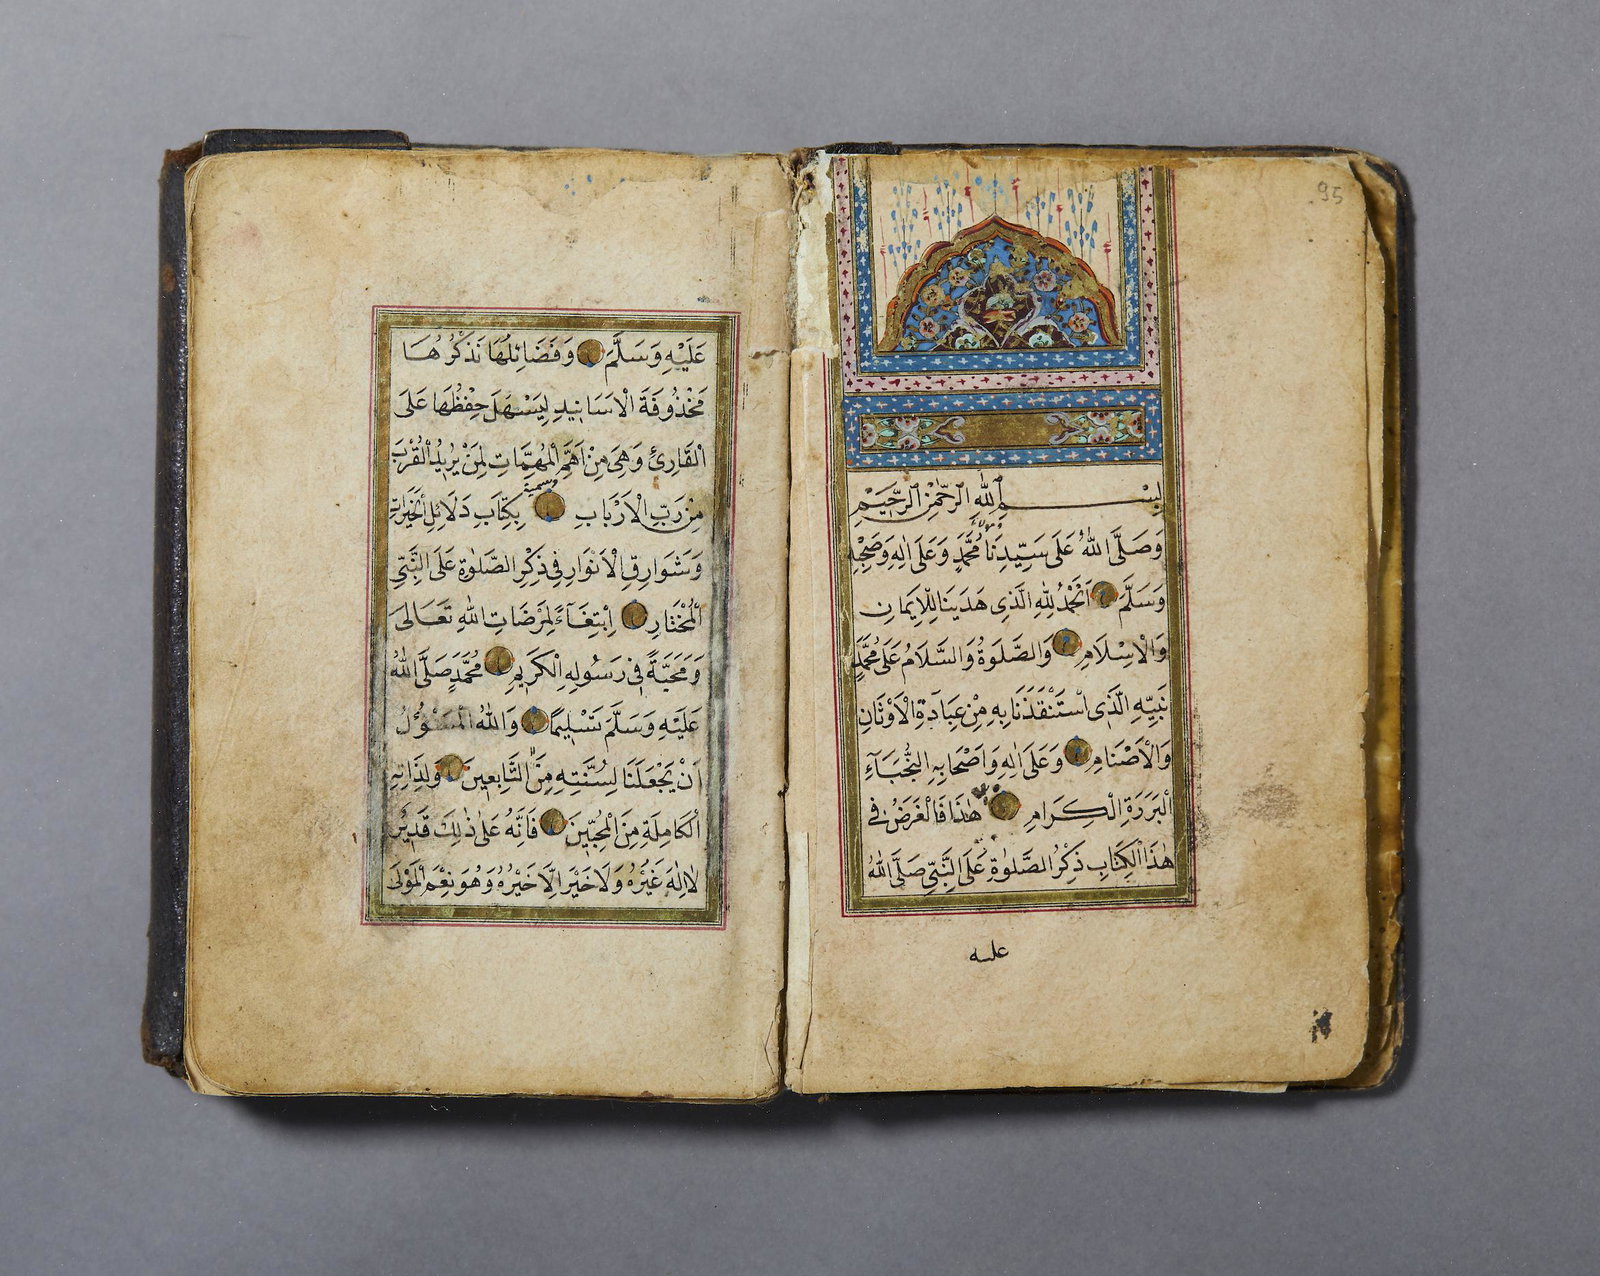 95
بِسْمِ اللّٰهِ الرَّحْمٰنِ الرَّحِيْمِ
وَصَلَّى اللّٰهُ عَلَى سَيِّدِنَا مُحَمَّدٍ وَعَلَى اٰلِهِ وَصَحْبِهِ
وَسَلَّمَ اَلْحَمْدُ لِلّٰهِ الَّذِي هَدَيٰنَا لِلْاِيْمَانِ
وَالْاِسْلَامِ وَالصَّلَوةُ وَالسَّلَامُ عَلَى مُحَمَّدٍ
نَبِيِّهِ الَّذِى اسْتَنْقَذَنَا بِهِ مِنْ عِبَادَةِ الْاَوْثَانِ
وَالْاَصْنَامِ وَعَلَى اٰلِهِ وَاَصْحَابِهِ النُّجَبَآءِ
الْبَرَرَةِ الْكِرَامِ هٰذَا فَالْغَرَضُ فِي
هٰذَا الْكِتَابِ ذِكْرُ الصَّلٰوةِ عَلَى النَّبِيِّ صَلَّى اللّٰهُ
عليه
عَلَيْهِ وَسَلَّمَ وَفَضَائِلُهَا نَذْكُرُهَا
مَحْذُوفَةَ الْاَسَانِيدِ لِيَسْهَلَ حِفْظُهَا عَلَى
الْقَارِئِ وَهِيَ مِنْ اَهَمِّ الْمُهِمَّاتِ لِمَنْ يُرِيدُ الْقُرْبَ
مِنْ رَبِّ الْاَرْبَابِ وسميته بِكِتَابِ دَلَائِلِ الْخَيْرَاتِ
وَشَوَارِقِ الْاَنْوَارِ فِي ذِكْرِ الصَّلٰوةِ عَلَى النَّبِيِّ
الْمُخْتَارِ اِبْتِغَآءً لِمَرْضَاتِ اللّٰهِ تَعَالَى
وَمَحَبَّةً فِي رَسُولِهِ الْكَرِيمِ مُحَمَّدٍ صَلَّى اللّٰهُ
عَلَيْهِ وَسَلَّمَ تَسْلِيمًا وَاللّٰهُ الْمَسْؤُلُ
اَنْ يَجْعَلَنَا لِسُنَّتِهِ مِنَ التَّابِعِينَ وَلِذَاتِهِ
الْكَامِلَةِ مِنَ الْمُحِبِّينَ فَاِنَّهُ عَلَى ذٰلِكَ قَدِيرٌ
لَا اِلٰهَ غَيْرُهُ وَلَا خَيْرَ اِلَّا خَيْرُهُ وَهُوَ نِعْمَ الْمَوْلَى